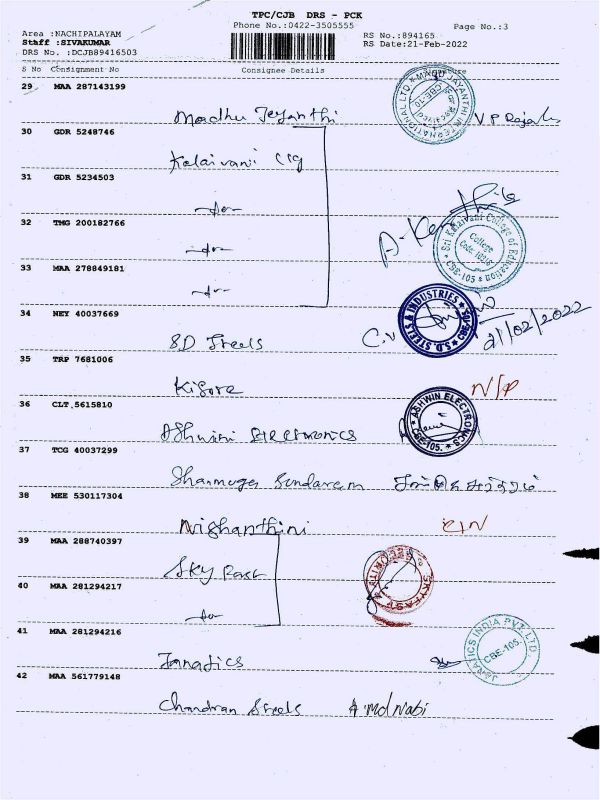 TPC/CJB DRS - PCK
Phone No.:0422-3505555
Page No.:3
Area :NACHIPALAYAM
Staff :SIVAKUMAR
DRS No. :DCJB89416503
RS No.:894165
RS Date:21-Feb-2022
S No Consignment No Consignee Details Signature
29 MAA 287143199
Madhu Jeyanthi V P Rajah
30 GDR 5248746
Kalaivani Clg
31 GDR 5234503
-do-
32 TMG 200182766
-do-
33 MAA 278849181
-do-
Sri Kalaivani College of Education
College
34 NEY 40037669
SD Steels
S.D. STEELS & INDUSTRIES
21/02/2022
35 TRP 7681006
Kisore N/P
36 CLT 5615810
Ashwini Electronics
ASHWIN ELECTRONICS
CBE-105.
37 TCG 40037299
Shanmuga Sundaram
38 MEE 530117304
Nishanthini
39 MAA 288740397
Sky Fast
SKYFAST SECURITY
40 MAA 281294217
-do-
41 MAA 281294216
Janatics
JANATICS INDIA PVT. LTD.
CBE-105.
42 MAA 561779148
Chandran Steels A Md Nabi